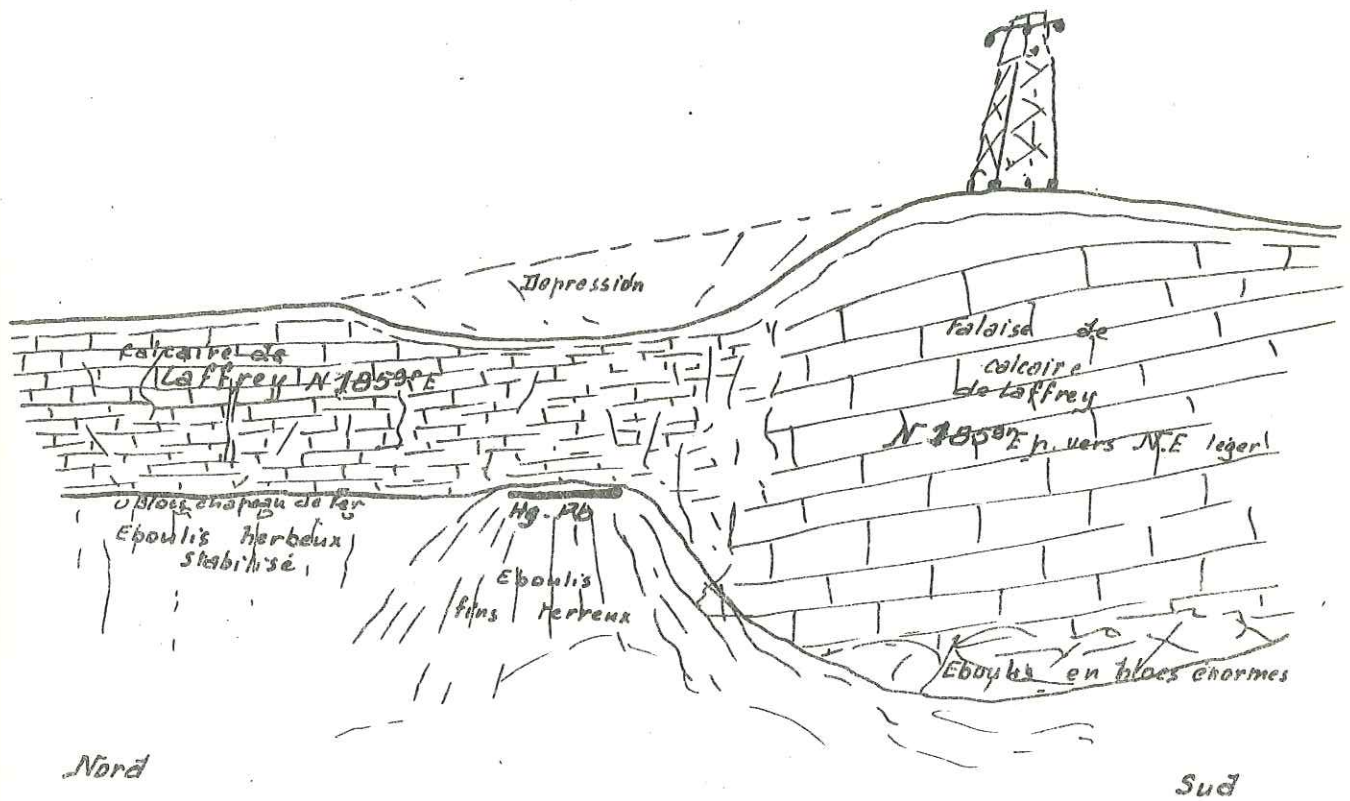 Depression
Calcaire de
Laffrey N 185gr E
Falaise de
calcaire
de Laffrey
N 185gr E p. vers N.E leger
Blocs chapeau de fer
Eboulis herbeux
stabilisé
Hg-Pb
Eboulis
fins terreux
Eboulis en blocs énormes
Nord
Sud